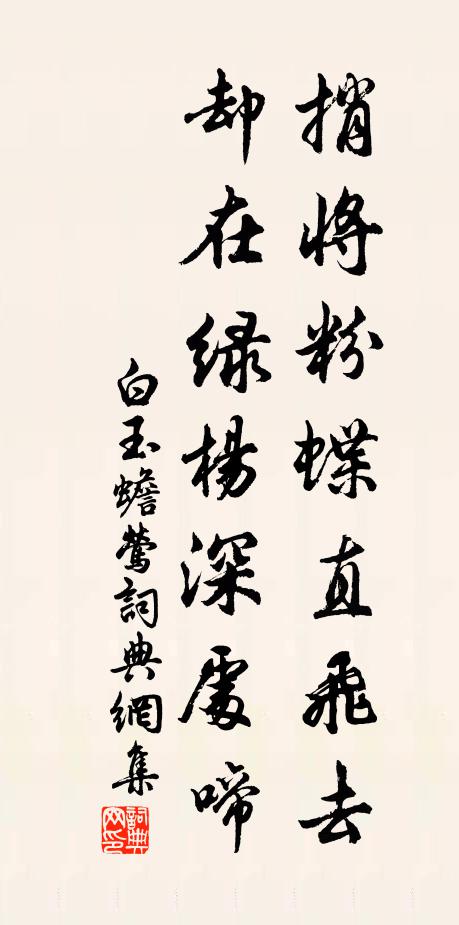 捎將粉蝶直飛去
却在緑楊深處啼
白玉蟾鶯詞典網集
詞典网印